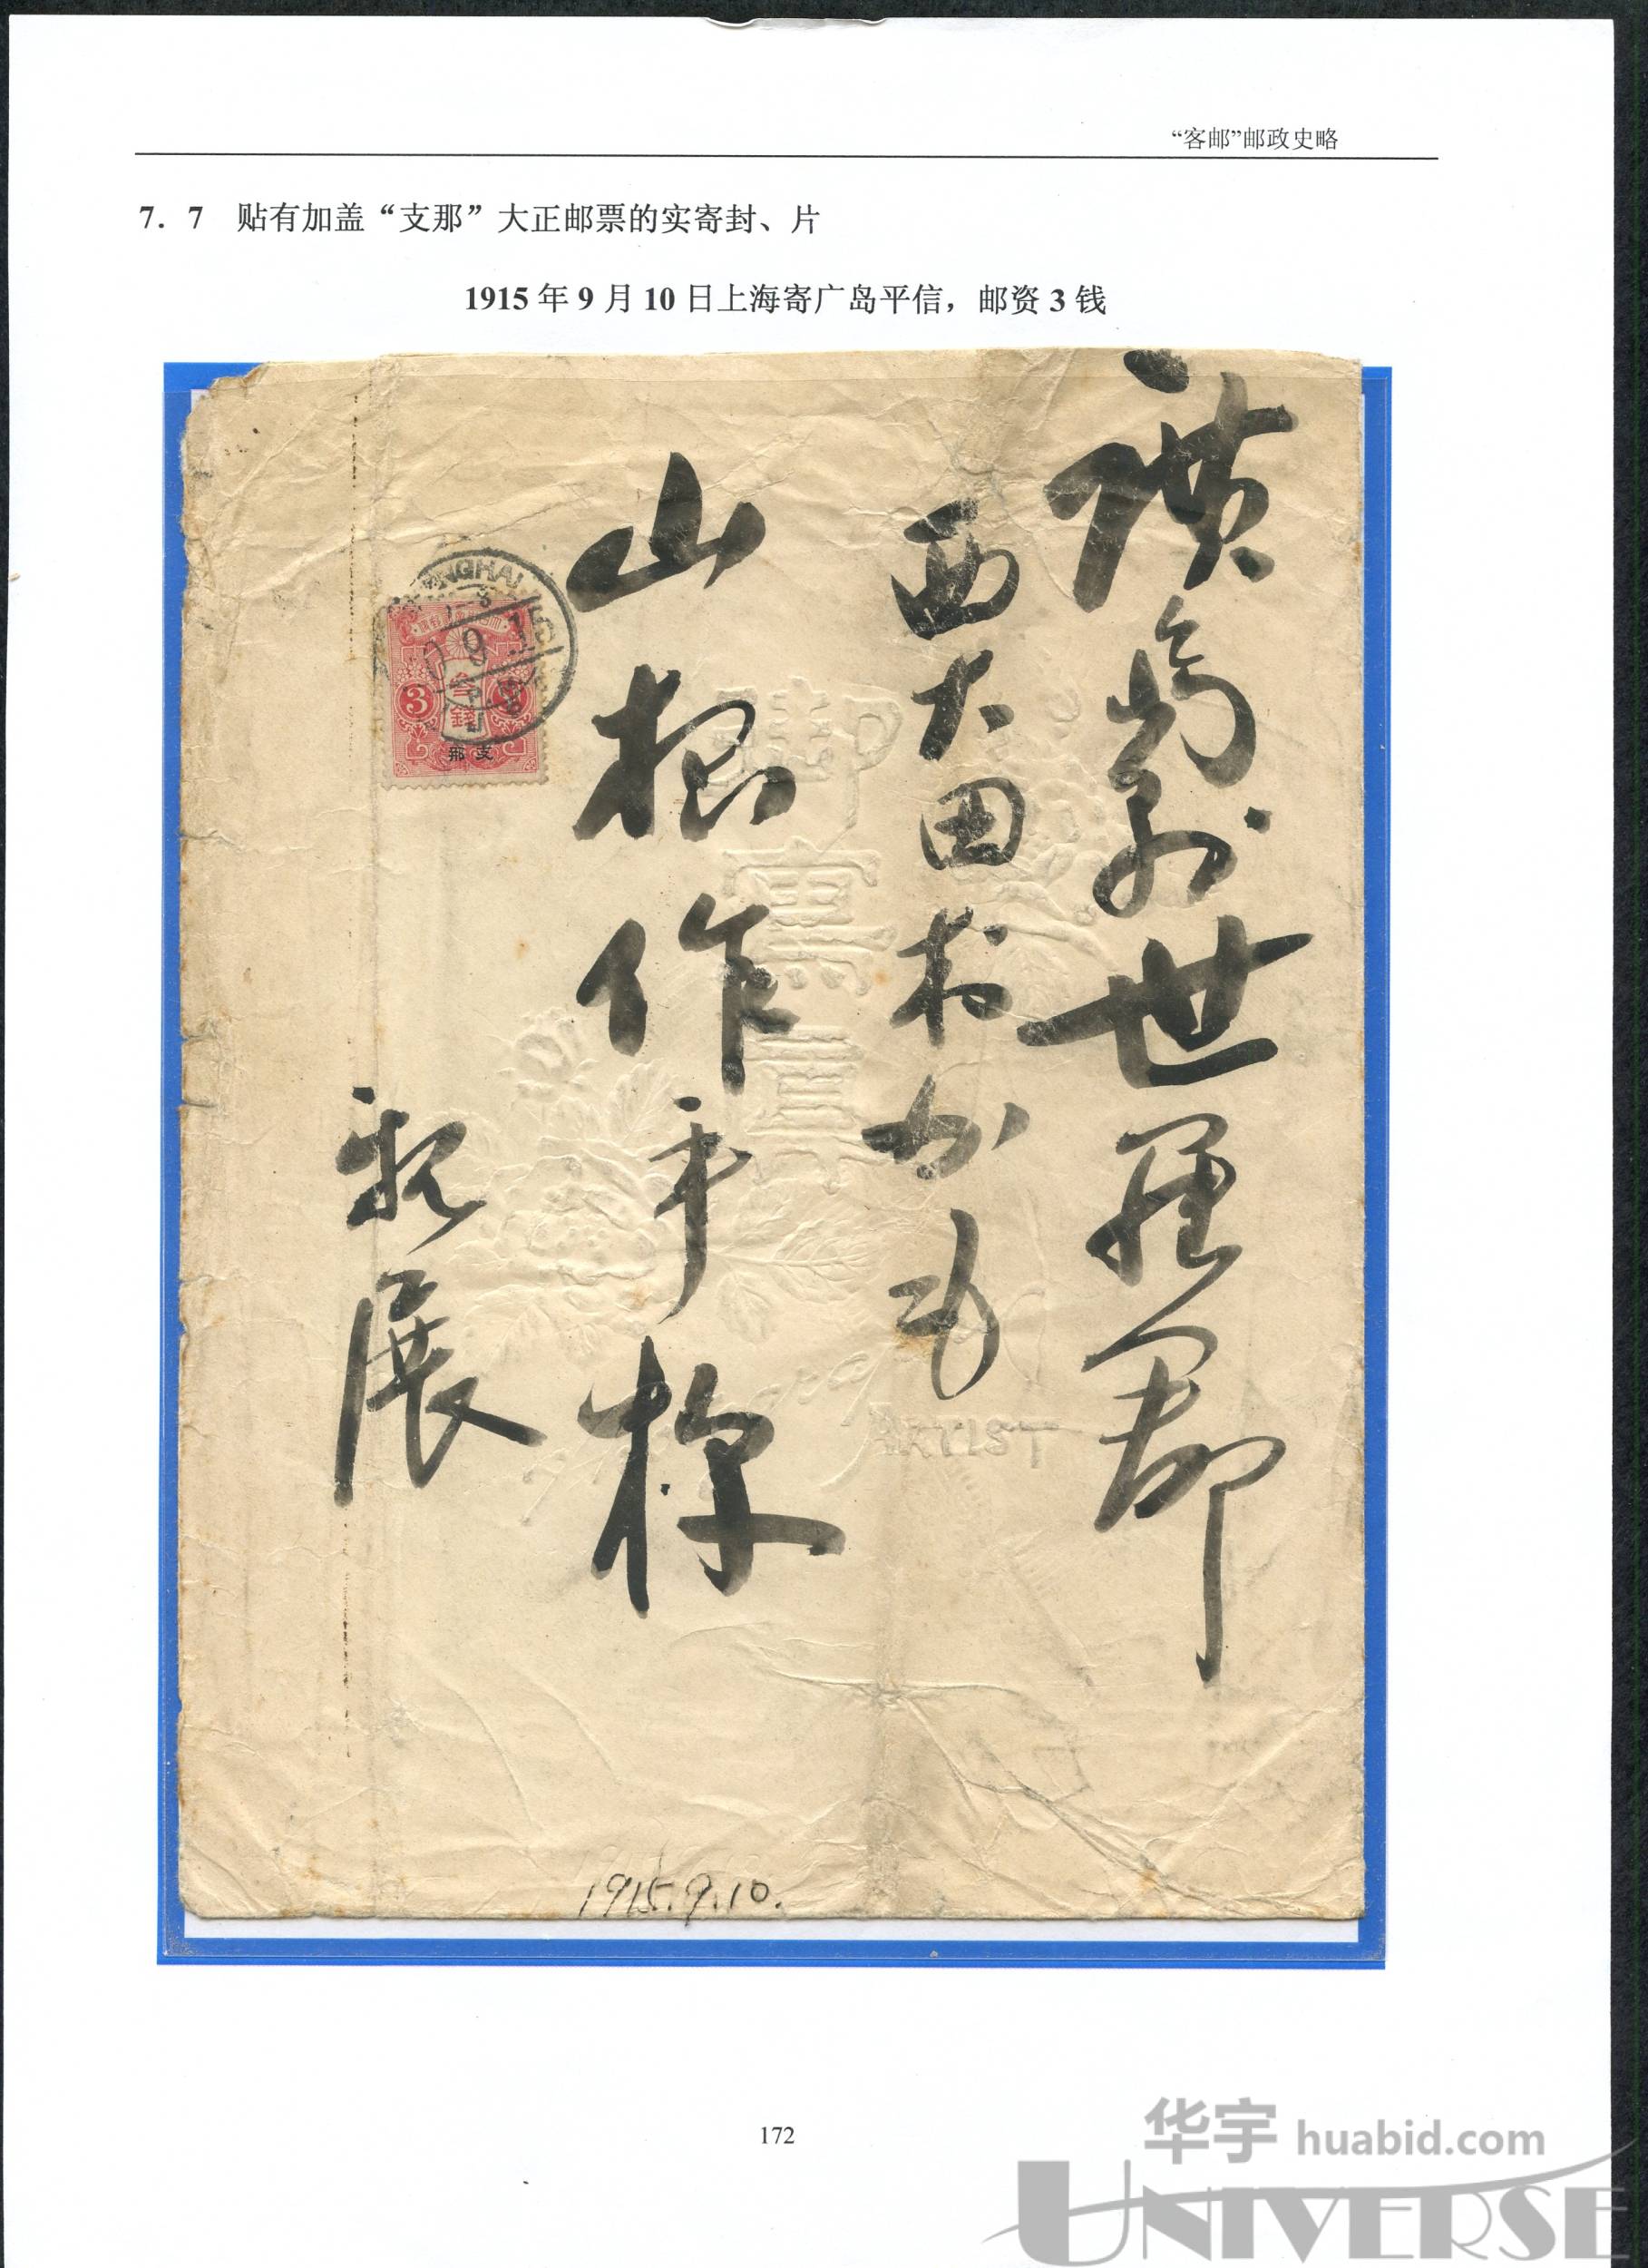 “客邮”邮政史略
7．7 贴有加盖“支那”大正邮票的实寄封、片
1915年9月10日上海寄广岛平信，邮资3钱
世羅郡
西大田村
山根作
展
3
叁
錢
那支
9
15
御
寫眞
ARTIST
1915.9.10.
172
华宇 huabid.com
UNIVERSE